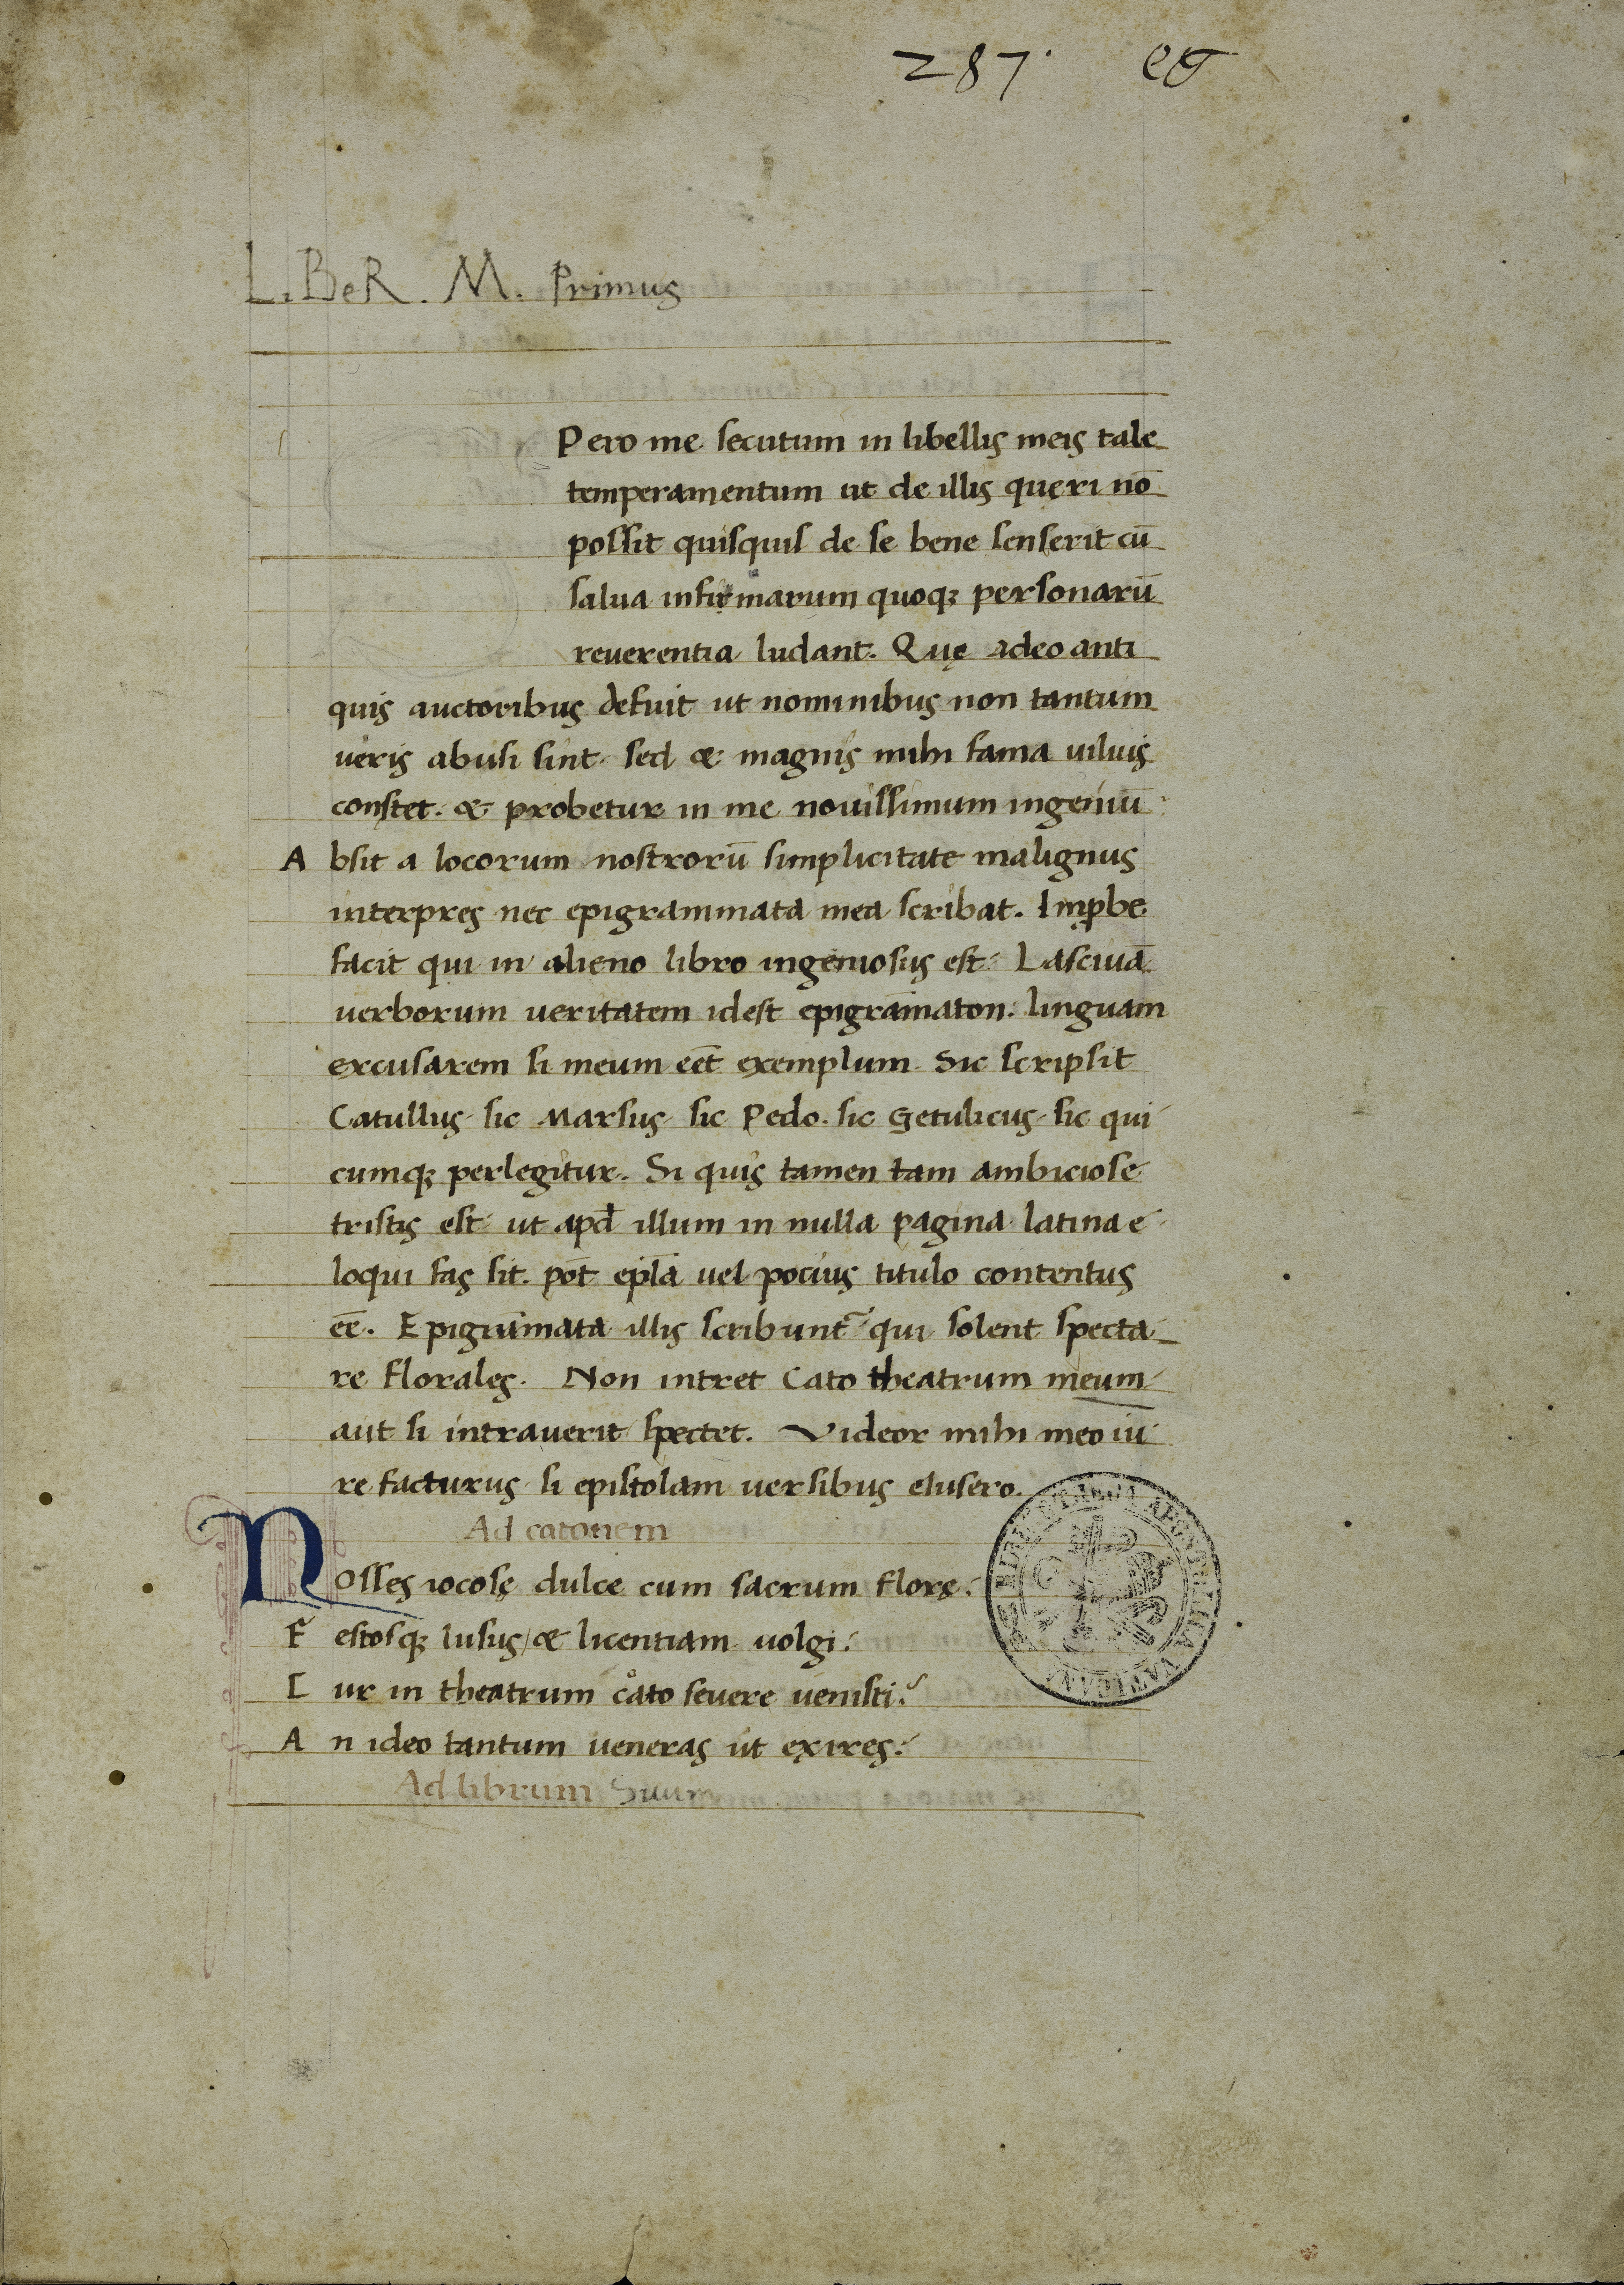 287. et
LiBeR. M. Primus
Pero me secutum in libellis meis tale
temperamentum ut de illis queri nō
possit quisquis de se bene senserit cū
salua infirmarum quoq; personarū
reuerentia ludant. Quę adeo anti
quis auctoribus defuit ut nominibus non tantum
ueris abusi sint. sed & magnis mihi fama uilius
constet. & probetur in me nouissimum ingeniū
A bsit a locorum nostrorū simplicitate malignus
interpres nec epigrammata mea scribat. Imꝓbe
facit qui in alieno libro ingeniosus est. Lasciuā
uerborum ueritatem idest epigrāmaton. linguam
excusarem si meum eēt exemplum. Sic scripsit
Catullus. sic Marsus. sic Pedo. sic Getulicus. sic qui
cumq; perlegitur. Si quis tamen tam ambiciose
tristis est ut apd̄ illum in nulla pagina latina e
loqui fas sit. pōt epl̄a uel pocius titulo contentus
eē. Epigrāmata illis scribunt̄ qui solent specta
re florales. Non intret Cato theatrum meum
aut si intrauerit spectet. Videor mihi meo iu
re facturus si epistolam uersibus clusero.
Ad catonem
Nosses iocosę dulce cum sacrum florę.
F estosq; lusus / & licentiam uolgi.
C ur in theatrum cato seuere uenisti?
A n ideo tantum ueneras ut exires.
Ad librum Suum